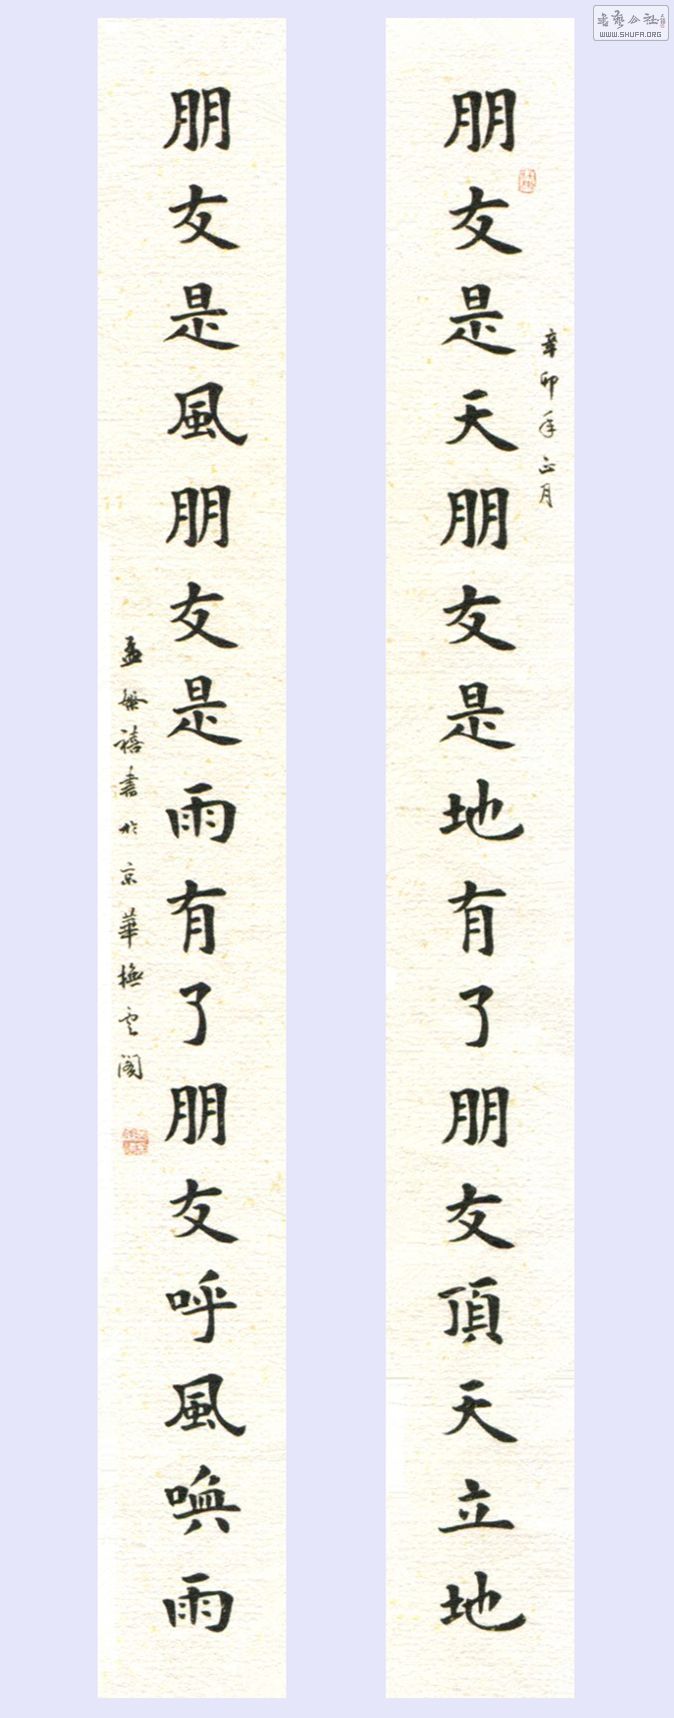 朋友是天朋友是地有了朋友頂天立地
辛卯年正月
朋友是風朋友是雨有了朋友呼風喚雨
孟繁禧書於京華撫雲閣
書藝公社
WWW.SHUFA.ORG